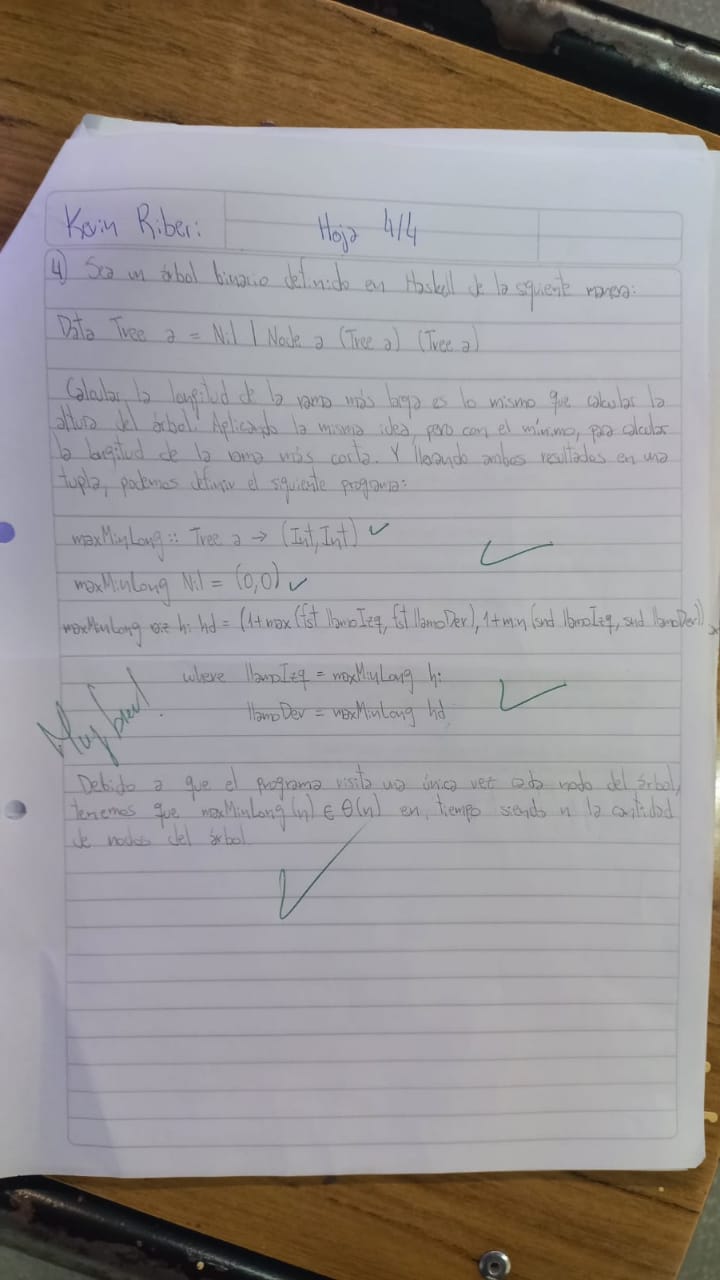 Kevin Riberi
Hoja 4/4
4) Sea un árbol binario definido en Haskell de la sguiente manera:
Data Tree a = Nil | Node a (Tree a) (Tree a)
Calcular la longitud de la rama más larga es lo mismo que calcular la
altura del árbol. Aplicando la misma idea, pero con el mínimo, para calcular
la longitud de la rama más corta. Y llevando ambos resultados en una
tupla, podemos definir el sguiente programa:
maxMinLong :: Tree a → (Int, Int) ✓
maxMinLong Nil = (0,0) ✓
maxMinLong hi hd = (1+max(fst llamoIzq, fst llamoDer), 1+min(snd llamoIzq, snd llamoDer))
where llamoIzq = maxMinLong hi
llamoDer = maxMinLong hd
Muy bien!
Debido a que el programa visita una única vez cada nodo del árbol,
tenemos que maxMinLong(n) ∈ Θ(n) en tiempo siendo n la cantidad
de nodos del árbol